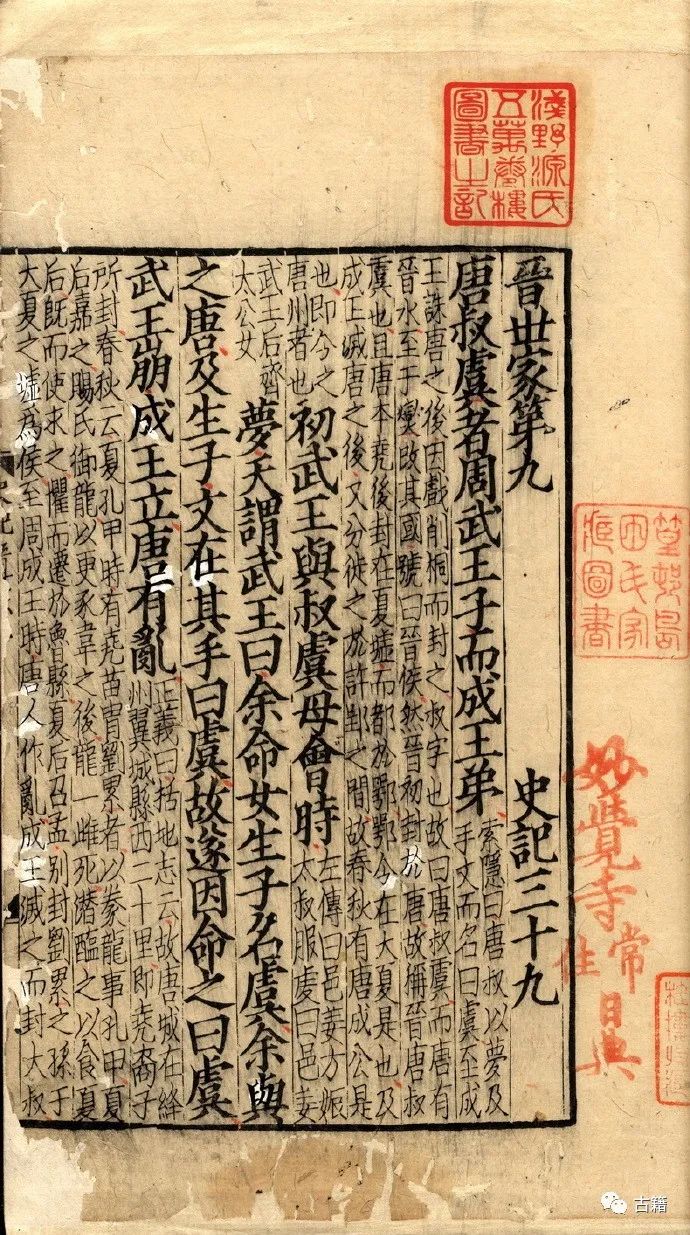 淺野源氏
五萬卷樓
圖書之記
篁邨島
田氏家
藏圖書
妙覺寺常住日典
晉世家第九 史記三十九
唐叔虞者周武王子而成王弟
索隱曰唐叔以夢及
手文而名曰虞至成
王誅唐之後因戲削桐而封之叔字也故曰唐叔虞而唐有
晉水至于燮改其國號曰晉侯然晉初封於唐故稱晉唐叔
虞也且唐本堯後封在夏墟而都於鄂鄂今在大夏是也及
成王滅唐之後又分徙之於許郢之間故春秋有唐成公是
也即今之
唐州者也
初武王與叔虞母會時
左傳曰邑姜方娠
太叔服虔曰邑姜
武王后齊
太公女
夢天謂武王曰余命女生子名虞余與
之唐及生子文在其手曰虞故遂因命之曰虞
武王崩成王立唐有亂
正義曰括地志云故唐城在絳
州翼城縣西二十里即堯裔子
所封春秋云夏孔甲時有堯苗冑劉累者以豢龍事孔甲夏
后嘉之賜氏御龍以更豕韋之後龍一雌死潛醢之以食夏
后既而使求之懼而遷於魯縣夏后召孟別封劉累之孫于
大夏之墟為侯至周成王時唐人作亂成王滅之而封太叔
古籍